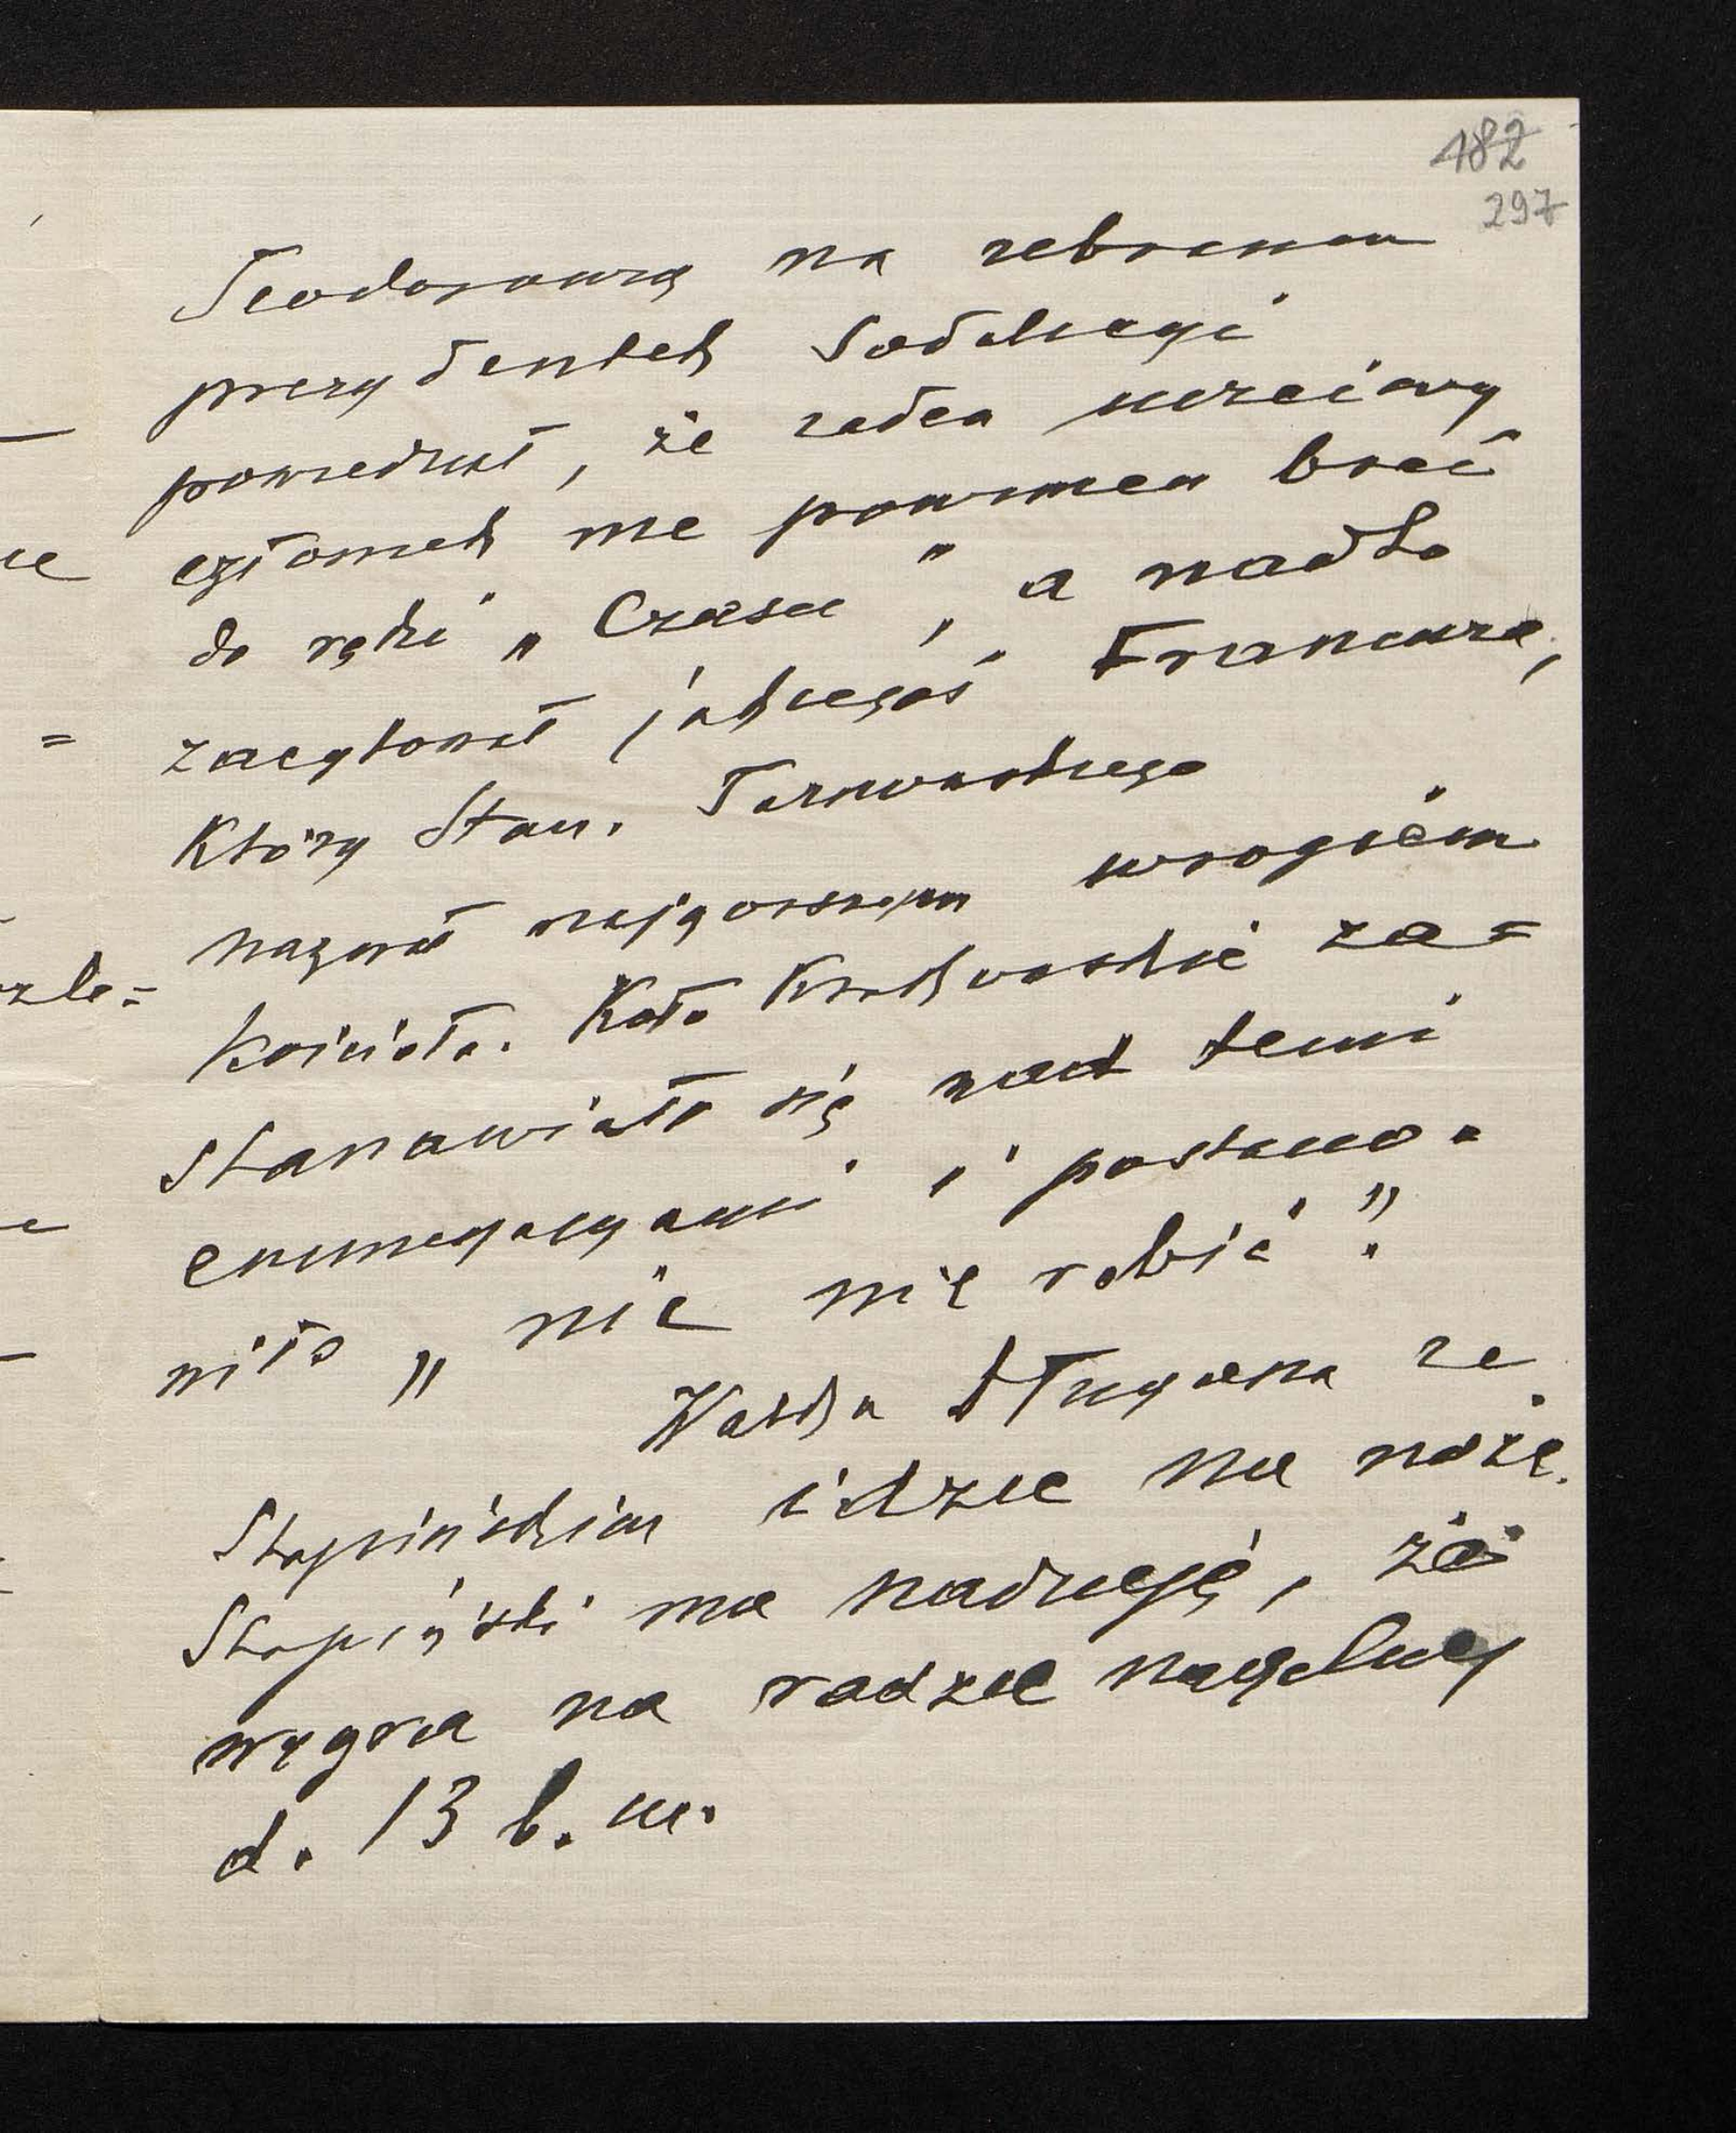 182
297
Teodorowicz na zebraniu
prezydentek Sodalicyi
powiedział, że żaden uczciwy
człowiek nie powinien brać
do ręki „Czasu", a nadto
zacytował jakiegoś Francuza,
który Stan. Tarnowskiego
nazwał najgorszym wrogiem
Kościoła. Koło Krakowskie za=
stanawiało się nad temi
enuncyacyami i postano=
wiło „nic nie robić".
Walka Długosza ze
Stapińskim idzie na noże.
Stapiński ma nadzieję, że
wygra na radzie naczelnej
d. 13 b. m.